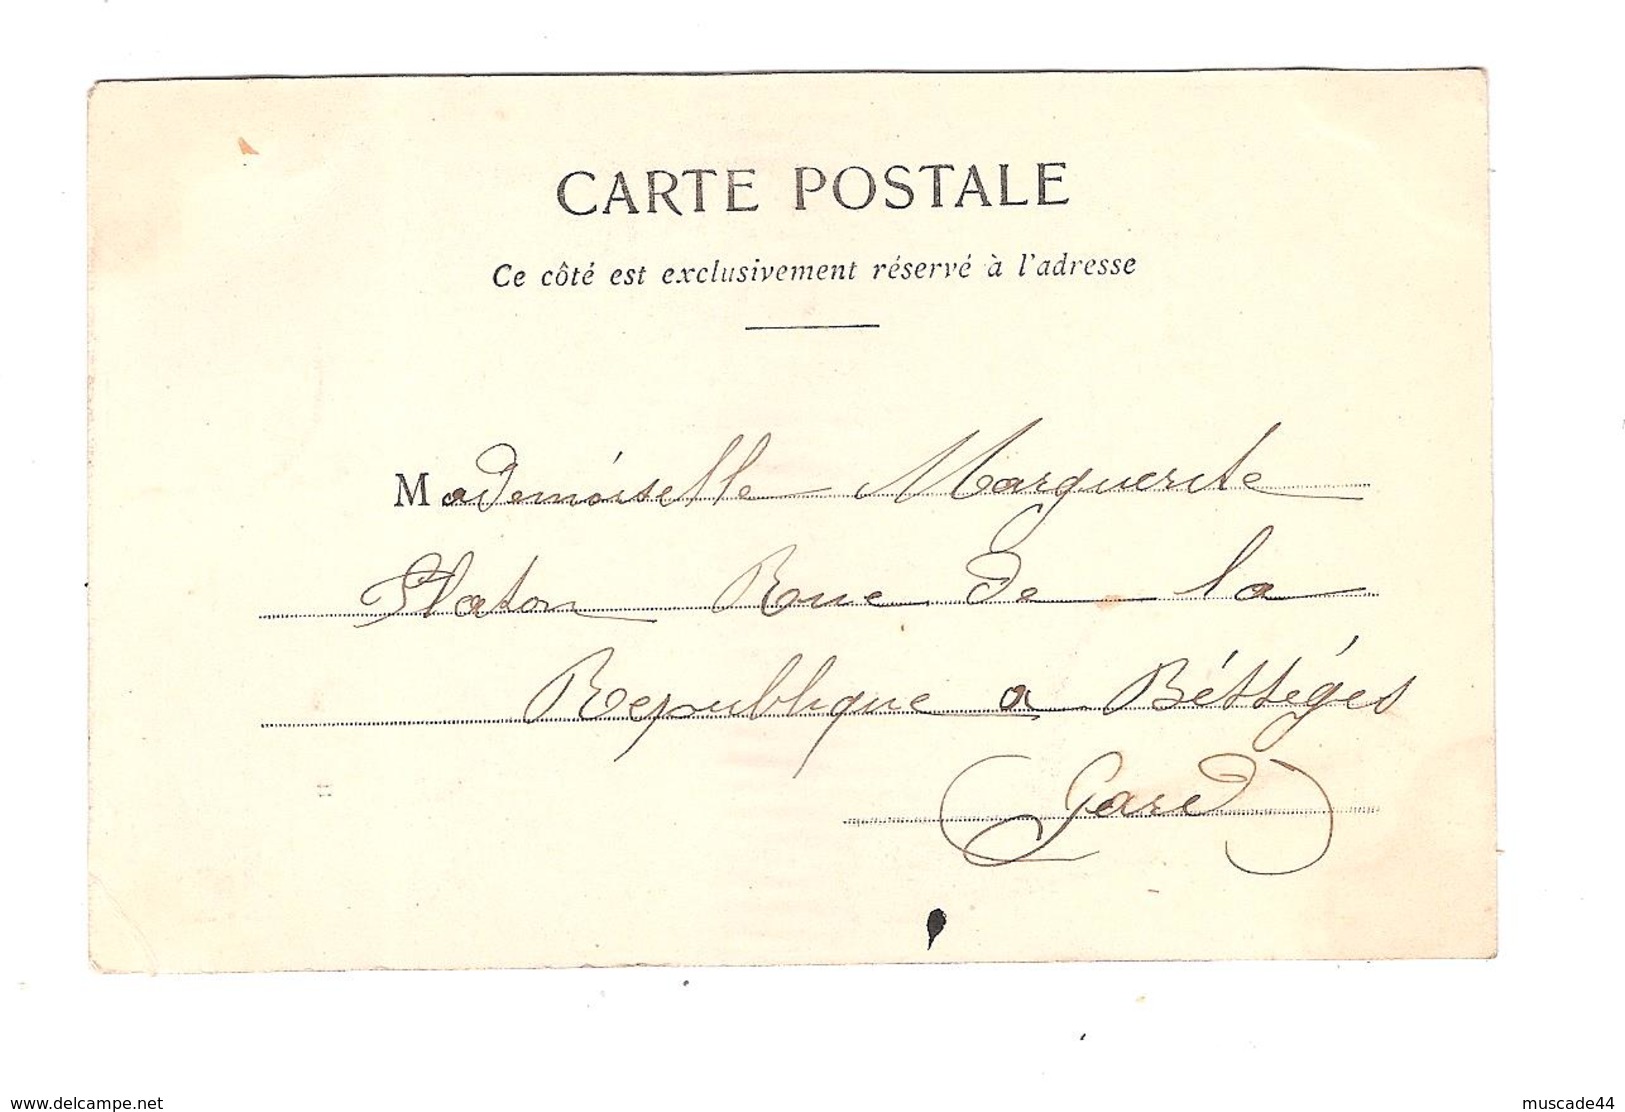 CARTE POSTALE
Ce côté est exclusivement réservé à l'adresse
Mademoiselle Marguerite
Platon Rue de la
Republique a Bésséges
(Gard)
www.delcampe.net
muscade44